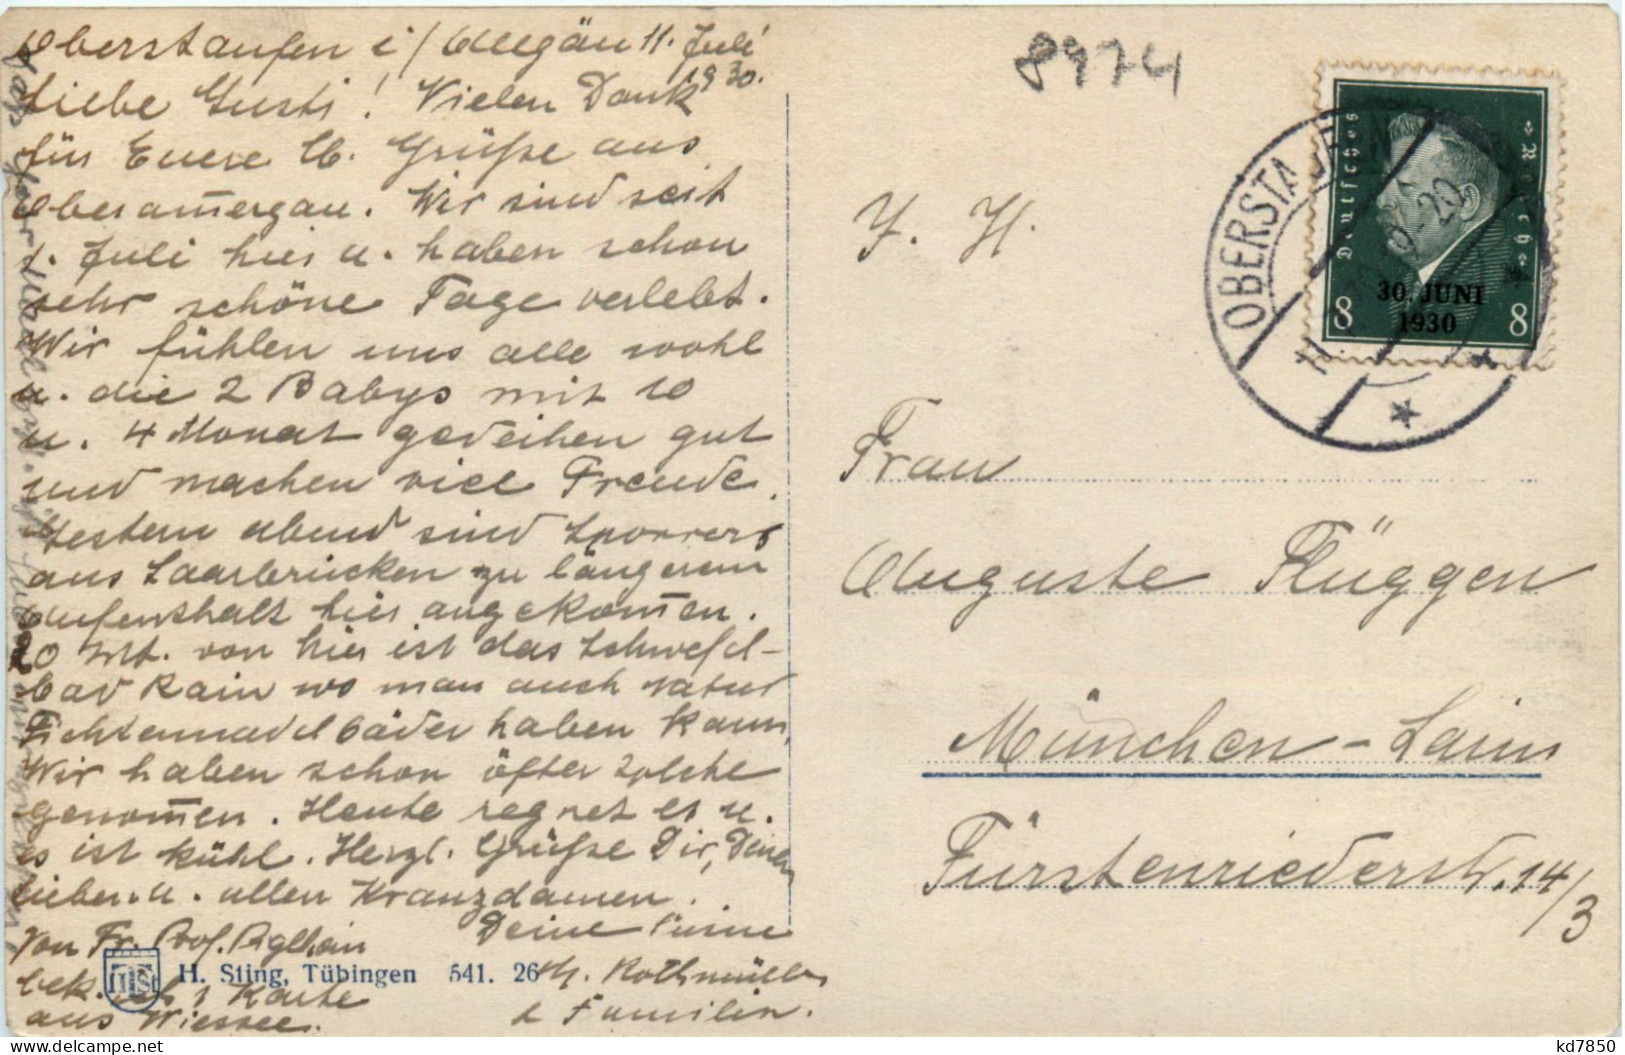 Oberstaufen i/Allgäu 11. Juli
1930.
Liebe Gusti! Vielen Dank
für Euere lb. Grüße aus
Oberam̅ergau. Wir sind seit
1. Juli hier u. haben schon
sehr schöne Tage verlebt.
Wir fühlen uns alle wohl
u. die 2 Babys mit 10
u. 4 Monat gedeihen gut
und machen viel Freude.
Gestern abend sind Sporrers
aus Saarbrücken zu längerem
Aufenthalt hier angekom̅en.
20 Mt. von hier ist das Schwefel-
bad Rain wo man auch Natur
Fichtennadelbäder haben kann,
Wir haben schon öfter solche
genom̅en. Heute regnet es u.
es ist kühl. Herzl. Grüße Dir, Deinen
Lieben u. allen Kranzdamen.
Deine
Von Fr. Prof. Piglhein
bek. ich 1 Karte
aus Wiessee.
Rothmüller
& Familie.
H. Sting, Tübingen 541. 26
8974
Deutsches Reich
30. JUNI
1930
8 8
OBERSTAUFEN
I. H.
Frau
Auguste Flüggen
München-Laim
Fürstenriederstr. 14/3
kd7850